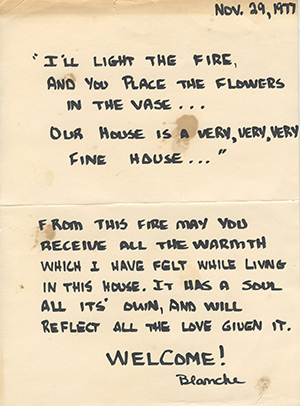 NOV. 29, 1977
"I'LL LIGHT THE FIRE,
AND YOU PLACE THE FLOWERS
IN THE VASE...
OUR HOUSE IS A VERY, VERY, VERY
FINE HOUSE..."
FROM THIS FIRE MAY YOU
RECEIVE ALL THE WARMTH
WHICH I HAVE FELT WHILE LIVING
IN THIS HOUSE. IT HAS A SOUL
ALL ITS' OWN, AND WILL
REFLECT ALL THE LOVE GIVEN IT.
WELCOME!
Blanche